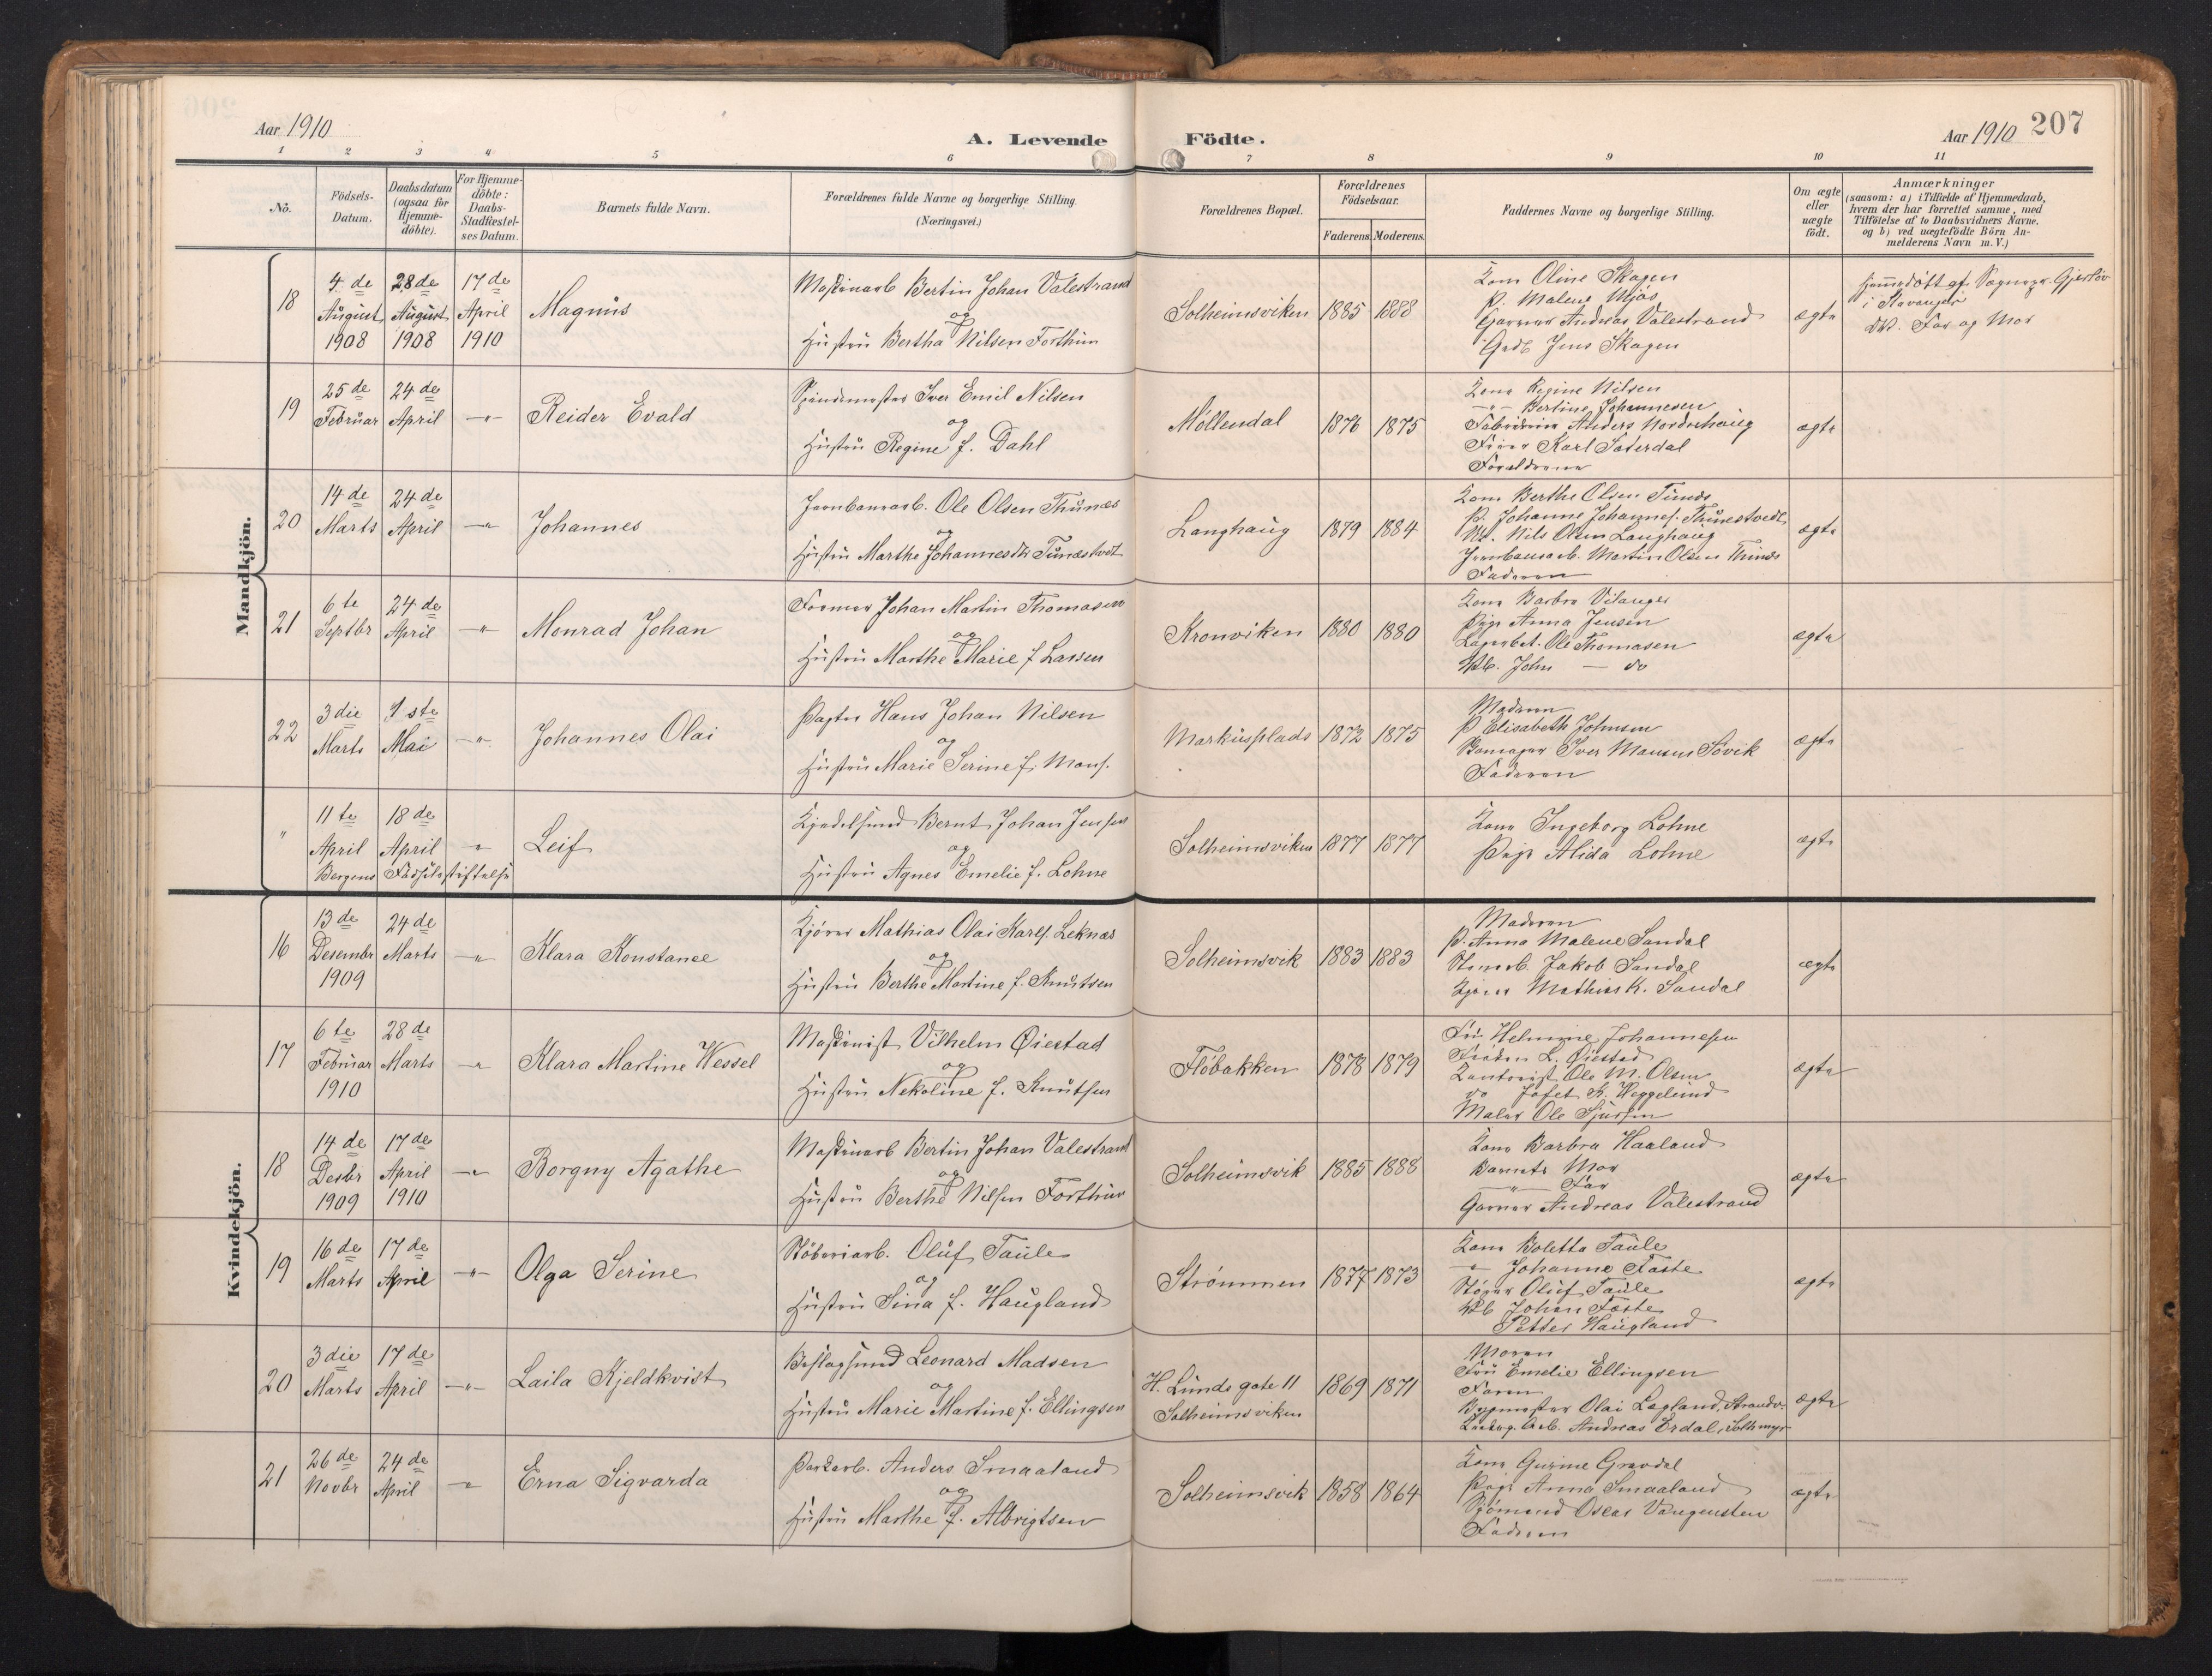 Aar 1910
A. Levende Födte.
Aar 1910 207
1 2 3 4 5 6 7 8 9 10 11
No.
Födsels-Datum.
Daabsdatum (ogsaa for Hjemmedöbte).
For Hjemmedöbte: Daabs-Stadfæstelses Datum.
Barnets fulde Navn.
Forældrenes fulde Navne og borgerlige Stilling.
(Næringsvei.)
Forældrenes Bopæl.
Forældrenes Födselsaar.
Faderens. Moderens.
Faddernes Navne og borgerlige Stilling.
Om ægte eller uægte födt.
Anmærkninger
(saasom: a) i Tilfælde af Hjemmedaab,
hvem der har forrettet samme, med
Tilföielse af to Daabsvidners Navne.
og b) ved uægtefödte Börn An-
melderens Navn m. V.)
Mandkjön.
18
4de August 1908
28de August 1908
17de April 1910
Magnus
Maskinarb Bertin Johan Valestrand
og
Hustru Bertha Nilsen Forthun
Solheimsviken 1885 1888
Kone Oline Skagen
P. Malene Mjös
Garver Andreas Valestrand
Gadb Jens Skagen
ægte
Hjemmedöbt af Sognepr. 
i Stavanger
DV. Far og Mor
19
25de Februar
24de April
-"-
Reider Evald
Iver Emil Nilsen
og
Hustru Regine f. Dahl
Möllendal 1876 1875
Kone Regine Nilsen
-"- Bertine Johannesen
Anders Nordrehaug
Karl Säterdal
Forældrene
ægte
20
14de Marts
24de April
-"-
Johannes
Jernbanearb. Ole Olsen Thunæs
og
Hustru Marthe Johannesdtr Tunæstvet
Langhaug 1879 1884
Kone Berthe Olsen Tunæs
P. Johanne Johannes. Thunestvedt
Nils Olsen Langhaug
Jernbanearb. Martin Olsen Thunes
Faderen
ægte
21
6te Septbr
24de April
-"-
Monrad Johan
Former Johan Martin Thomasen
og
Hustru Marthe Marie f Larsen
Kronviken 1880 1880
Kone Barbra Vilanger
Pige Anna Jensen
Lagerbet. Ole Thomasen
John — do
ægte
22
3die Marts
1ste Mai
-"-
Johannes Olai
Hans Johan Nilsen
og
Hustru Marie Serine f. Mons.
Markusplads 1872 1875
Moderen
P Elisabeth Johnsen
Iver Monsen Søvik
Faderen
ægte
"
11te April
18de April
"
Bergens Födselsstiftelse
Leif
Kjedelsmed Bernt Johan Jensen
og
Hustru Agnes Emelie f. Lohne
Solheimsviken 1877 1877
Kone Ingeborg Lohne
Pige Alida Lohne
ægte
Kvindekjön.
16
13de Desembr 1909
24de Marts
-"-
Klara Konstance
Kjörer Mathias Olai Karls. Leknæs
og
Hustru Berthe Martine f. Knutsen
Solheimsvik 1883 1883
Moderen
P. Anna Malene Sandal
Jakob Sandal
Kjörer Mathias K. Sandal
ægte
17
6te Februar 1910
28de Marts
-"-
Klara Martine Wessel
Maskinist Vilhelm Øiestad
og
Hustru Nekoline f. Knutsen
Flöbakken 1878 1879
Fru Helmine Johannesen
Fröken L. Øiestad
Kontorist Ole M. Olsen
do Jofet K. Heggelund
Maler Ole Sjursen
ægte
18
14de Desbr 1909
17de April 1910
-"-
Borgny Agathe
Maskinarb Bertin Johan Valestrand
og
Hustru Berthe Nilsen Forthun
Solheimsvik 1885 1888
Kone Barbra Haaland
Barnets Mor
—"— Far
Garver Andreas Valestrand
ægte
19
16de Marts
17de April
-"-
Olga Serine
Støberiarb. Oluf Taule
og
Hustru Sina f. Haugland
Strømmen 1877 1873
Kone Boletta Taule
-"- Johanne Fæste
Støper Oluf Taule
Johan Fæste
Petter Haugland
ægte
20
3die Marts
17de April
-"-
Laila Kjeldkvist
Beslagsmed Leonard Madsen
og
Hustru Marie Martine f. Ellingsen
H. Lunds gate 11
Solheimsviken
1869 1871
Moren
Fru Emelie Ellingsen
Faren
Bygmester Olai Lagland, Strandv.
Arb. Andreas Erdal, Solhmyr
ægte
21
26de Novbr
24de April
-"-
Erna Sigvarda
Anders Smaaland
og
Hustru Marthe f. Albrigtsen
Solheimsvik 1858 1864
Kone Gurine Gravdal
Pige Anna Smaaland
Sjömand Oscar Vangensten
Faderen
ægte